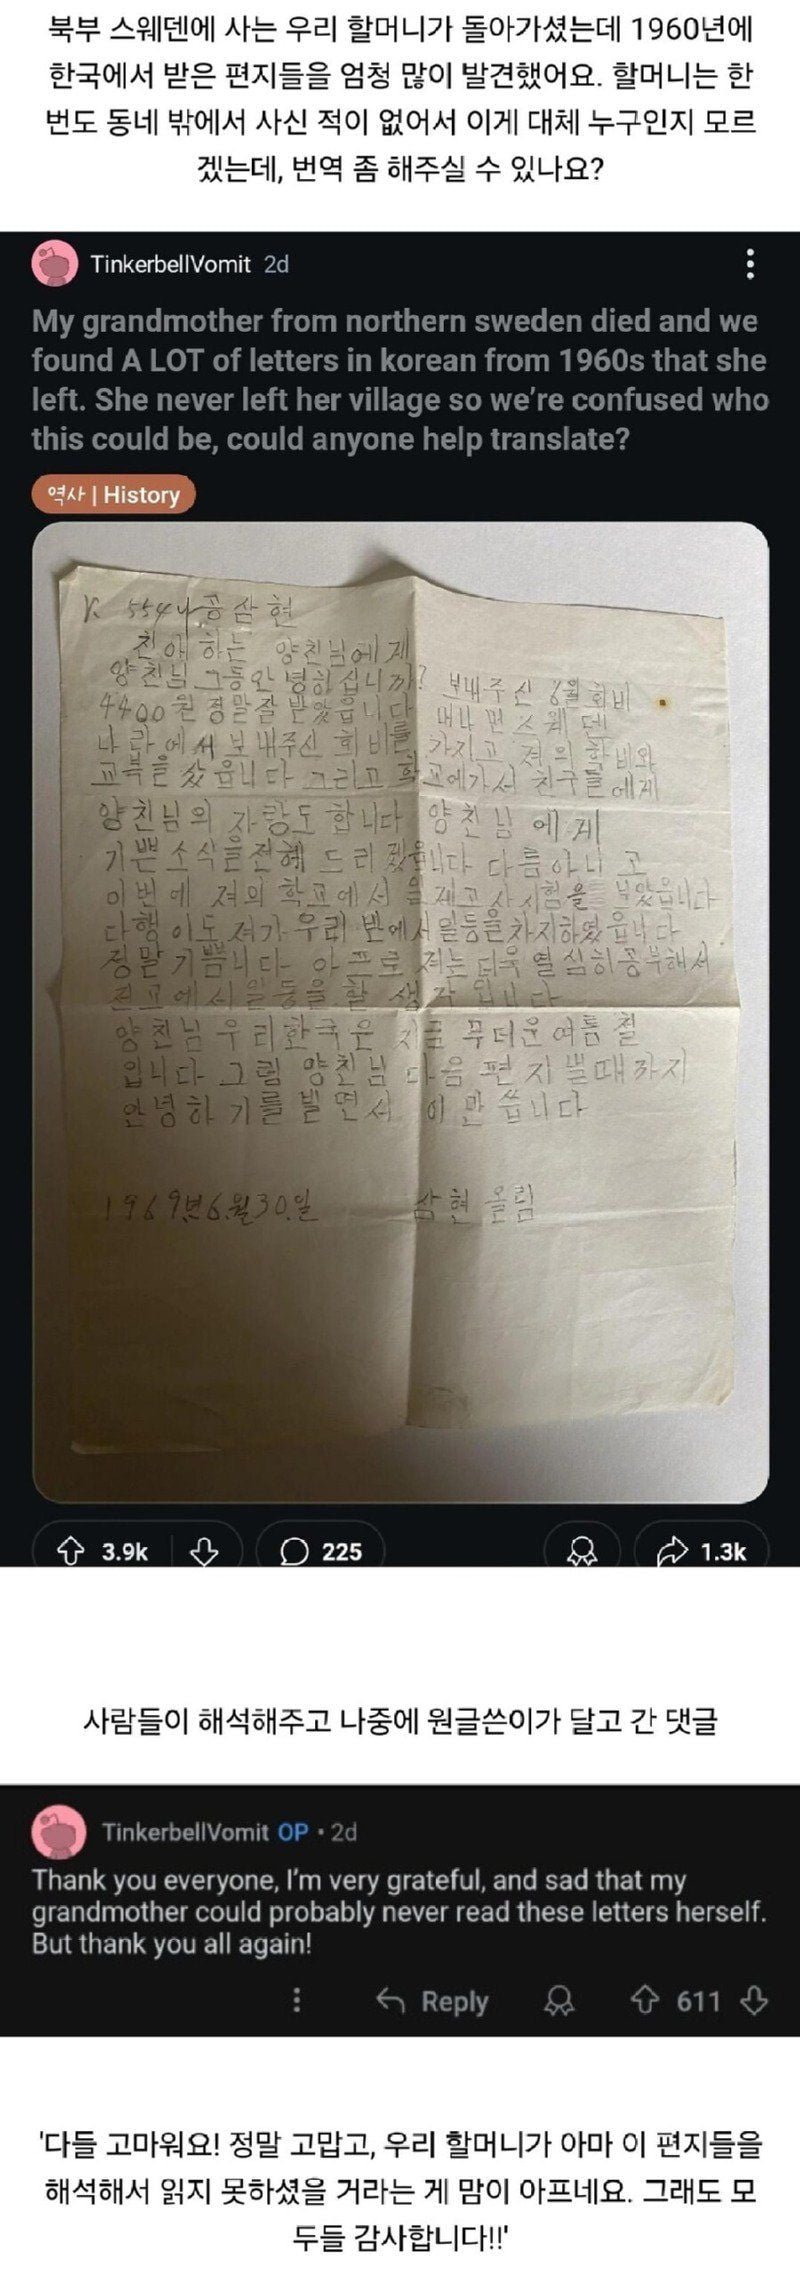 북부 스웨덴에 사는 우리 할머니가 돌아가셨는데 1960년에
한국에서 받은 편지들을 엄청 많이 발견했어요. 할머니는 한
번도 동네 밖에서 사신 적이 없어서 이게 대체 누구인지 모르
겠는데, 번역 좀 해주실 수 있나요?
TinkerbellVomit 2d
My grandmother from northern sweden died and we
found A LOT of letters in korean from 1960s that she
left. She never left her village so we're confused who
this could be, could anyone help translate?
역사 | History
K 554 공삼현
친애하는 양친님에게
양친님 그동안 녕히십니까? 보내주신 6월 회비
4400원 정말잘 받았읍니다 머나먼 스웨덴
나라에서 보내주신 회비를 가지고 져의 학비와
교북을 샀읍니다 그리고 학교에가서 친구들에게
양친님의 자랑도 합니다 양친님에게
기쁜 소식을전헤 드리겠읍니다 다름아니고
이번에 져의 학교에서 일제고사시험을 보았읍니다
다행이도 져가 우리 반에서 일등을차지하였읍니다
정말기쁨니다 아프로 져는 더욱 열심히공부해서
전교에서일등을할 생각입니다
양친님 우리한국은 지금 무더운여름철
입니다 그럼 양친님 다음 편지쓸때까지
안녕하기를 빌면서 이만 씁니다
1969년6월30일 삼현 올림
3.9k 225 1.3k
사람들이 해석해주고 나중에 원글쓴이가 달고 간 댓글
TinkerbellVomit OP • 2d
Thank you everyone, I'm very grateful, and sad that my
grandmother could probably never read these letters herself.
But thank you all again!
Reply 611
'다들 고마워요! 정말 고맙고, 우리 할머니가 아마 이 편지들을
해석해서 읽지 못하셨을 거라는 게 맘이 아프네요. 그래도 모
두들 감사합니다!!'